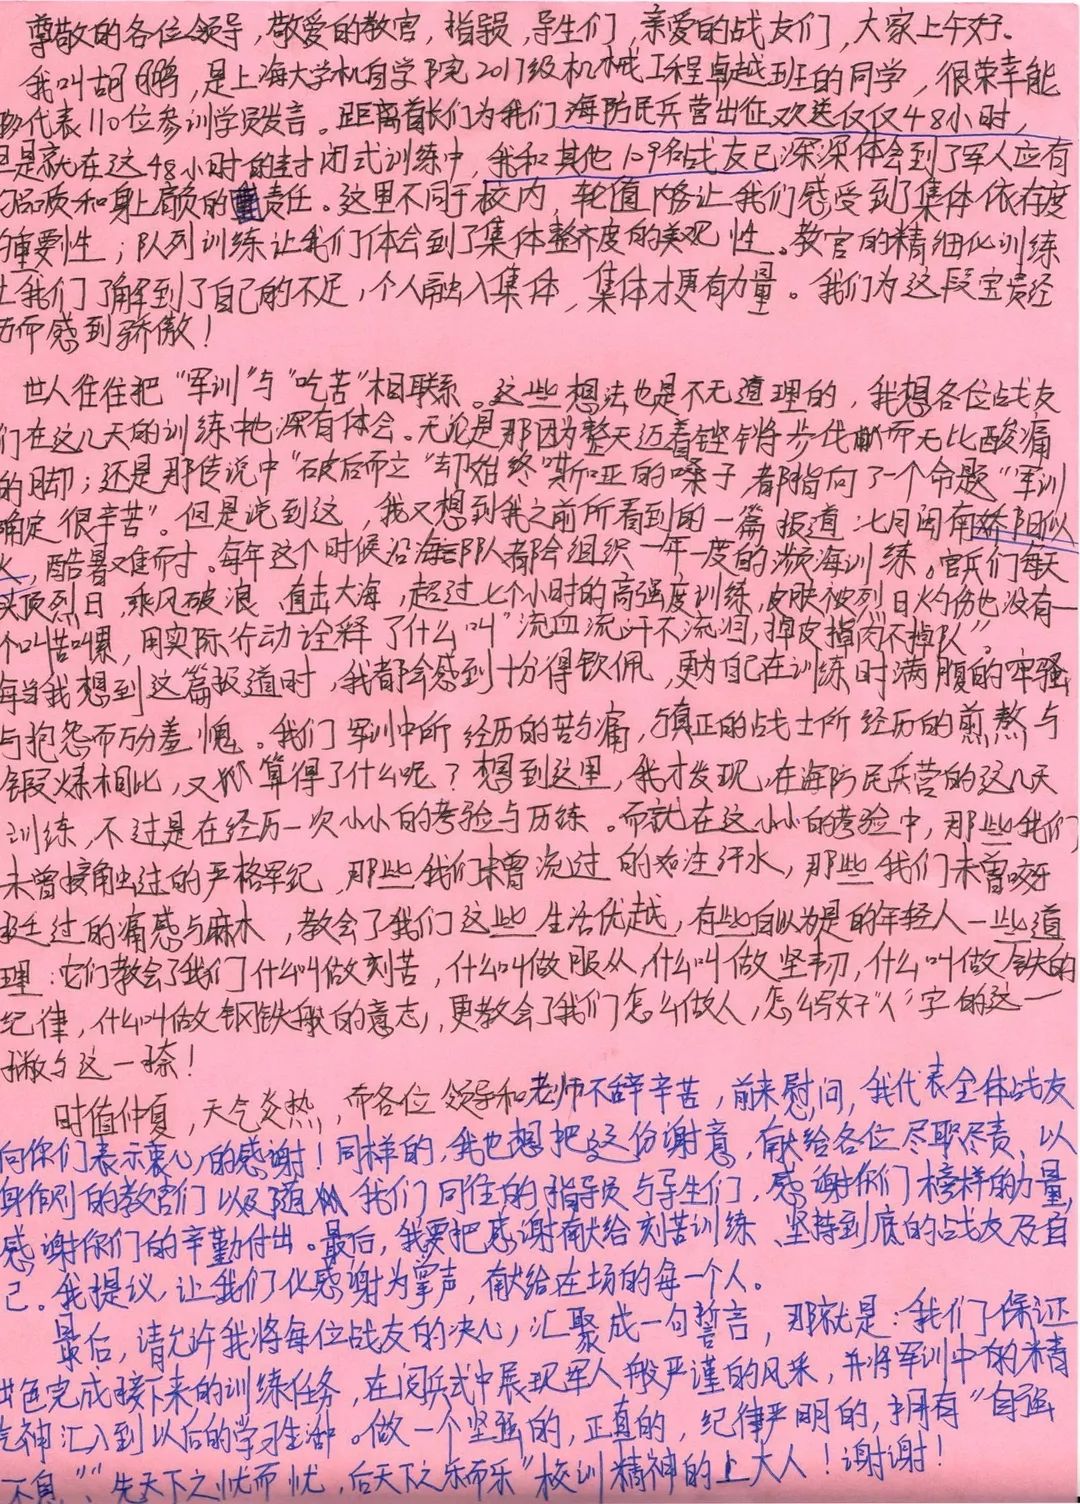 尊敬的各位领导,敬爱的教官,指导员,导生们,亲爱的战友们,大家上午好。
我叫胡鹏,是上海大学机自学院2017级机械工程卓越班的同学,很荣幸能
够代表110位参训学员发言。距离首长们为我们海防民兵营出征欢送仅仅48小时,
但是就在这48小时的封闭式训练中,我和其他109名战友已深深体会到了军人应有
的品质和身上肩负的责任。这里不同于校内,轮值内务让我们感受到了集体依存度
的重要性;队列训练让我们体会到了集体整齐度的美观性。教官的精细化训练
让我们了解到了自己的不足,个人融入集体,集体才更有力量。我们为这段宝贵经
历而感到骄傲!
世人往往把“军训”与“吃苦”相联系。这些想法也是不无道理的,我想各位战友
们在这几天的训练中也深有体会。无论是那因为整天迈着铿锵步伐而无比酸痛
的脚;还是那传说中“破后而立”却始终嘶哑的嗓子都指向了一个命题“军训
确定很辛苦”。但是说到这,我又想到我之前所看到的一篇报道:七月闽南骄阳似
火,酷暑难耐。每年这个时候沿海部队都会组织一年一度的濒海训练。官兵们每天
头顶烈日,乘风破浪,直击大海,超过七个小时的高强度训练,皮肤被烈日灼伤也没有一
个叫苦叫累,用实际行动诠释了什么叫“流血流汗不流泪,掉皮掉肉不掉队”。
每当我想到这篇报道时,我都会感到十分得钦佩,更为自己在训练时满腹的牢骚
与抱怨而万分羞愧。我们军训中所经历的苦与痛,与真正的战士所经历的煎熬与
锻炼相比,又算得了什么呢?想到这里,我才发现,在海防民兵营的这几天
训练,不过是在经历一次小小的考验与历练。而就在这小小的考验中,那些我们
未曾接触过的严格军纪,那些我们未曾流过的如注汗水,那些我们未曾咬牙
挺过的痛感与麻木,教会了我们这些生活优越,有些自以为是的年轻人一些道
理:它们教会了我们什么叫做刻苦,什么叫做服从,什么叫做坚韧,什么叫做铁的
纪律,什么叫做钢铁般的意志,更教会了我们怎么做人,怎么写好“人”字的这一
撇与这一捺!
时值仲夏,天气炎热,而各位领导和老师不辞辛苦,前来慰问,我代表全体战友
向你们表示衷心的感谢!同样的,我也想把这份谢意,献给各位尽职尽责、以
身作则的教官们以及随我们同住的指导员与导生们,感谢你们榜样的力量,
感谢你们的辛勤付出。最后,我要把感谢献给刻苦训练、坚持到底的战友及自
己。我提议,让我们化感谢为掌声,献给在场的每一个人。
最后,请允许我将每位战友的决心,汇聚成一句誓言,那就是:我们保证
出色完成接下来的训练任务,在阅兵式中展现军人般严谨的风采,并将军训中的精
气神汇入到以后的学习生活中。做一个坚强的,正真的,纪律严明的,拥有“自强
不息”“先天下之忧而忧,后天下之乐而乐”校训精神的上大人!谢谢!